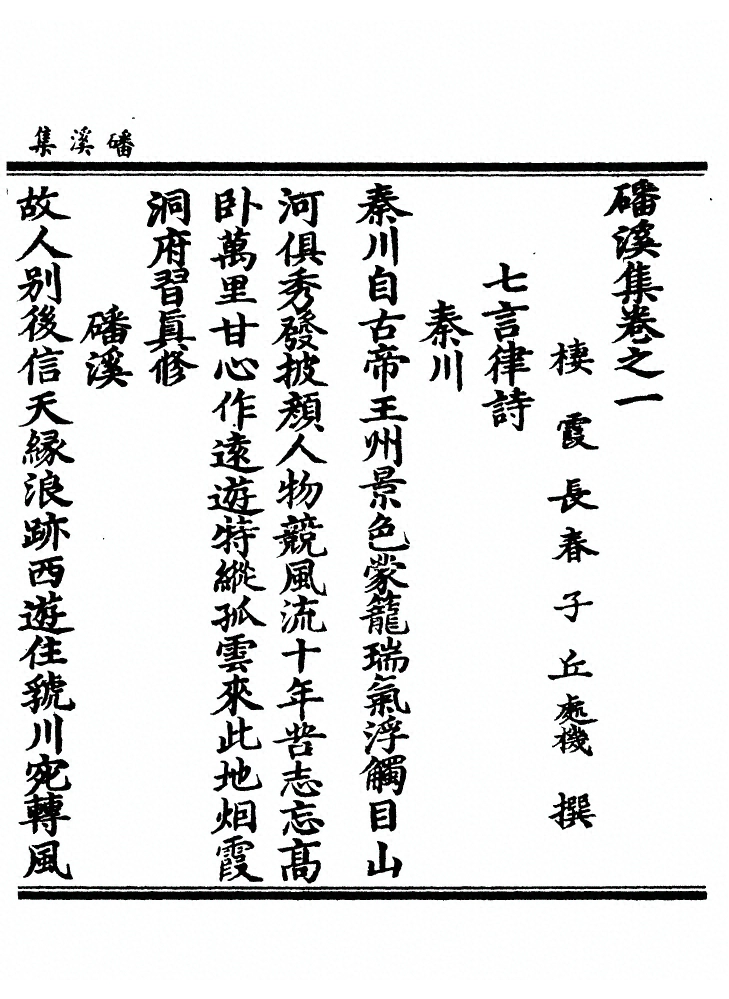 磻溪集
磻溪集卷之一
棲霞長春子丘處機撰
七言律詩
秦川
秦川自古帝王州景色蒙籠瑞氣浮觸目山
河俱秀發披顏人物競風流十年苦志忘高
卧萬里甘心作遠遊特縱孤雲來此地烟霞
洞府習眞修
磻溪
故人别後信天緣浪跡西遊住虢川宛轉風